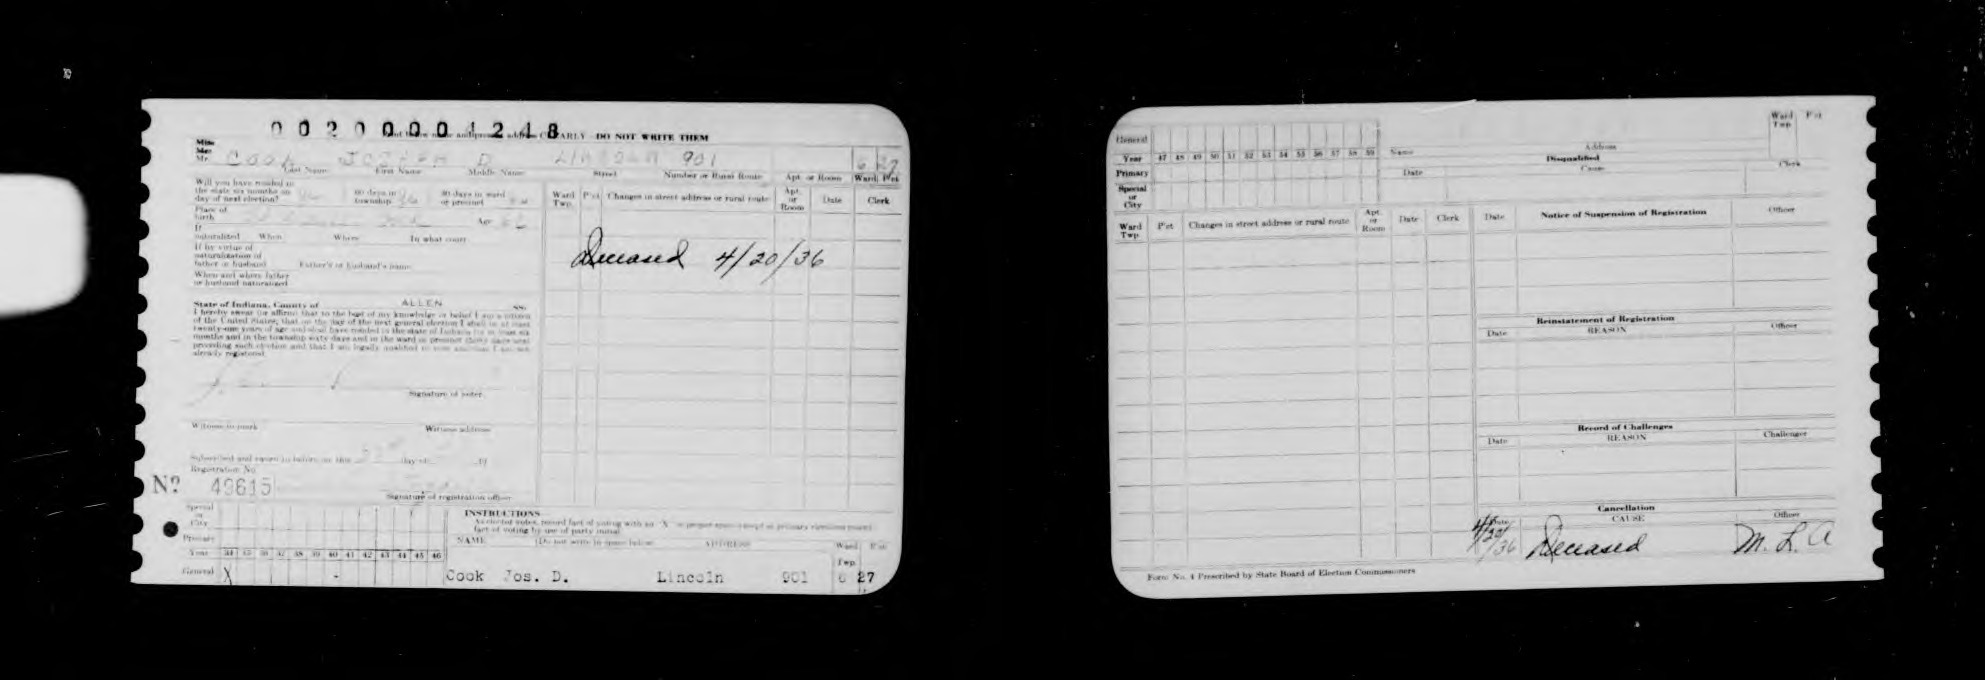 0020001248
DO NOT WRITE THEM
Miss
Mrs.
Mr. COOK JOSEPH D LINCOLN 901 6 27
Last Name First Name Middle Name Street Number or Rural Route Apt. or Room Ward P'ct
Will you have resided in
the state six months on
day of next election? 60 days in
township 30 days in ward
or precinct
Place of
birth Age
If
naturalized When Where In what court
If by virtue of
naturalization of
father or husband Father's or husband's name
When and where father
or husband naturalized
State of Indiana, County of ALLEN SS.
I hereby swear (or affirm) that to the best of my knowledge or belief I am a citizen
of the United States; that on the day of the next general election I shall be at least
twenty-one years of age and shall have resided in the state of Indiana for at least six
months and in the township sixty days and in the ward or precinct thirty days next
preceding such election and that I am legally qualified to vote
already registered.
Signature of voter
Witness to mark Witness address
Subscribed and sworn to before me this day of
Registration No.
Nº 49615
Signature of registration officer
Ward
Twp. P'ct Changes in street address or rural route Apt.
or
Room Date Clerk
Deceased 4/20/36
Special
or
City
Primary
Year 34 35 36 37 38 39 40 41 42 43 44 45 46
General X
INSTRUCTIONS
NAME (Do not write in space below) ADDRESS Ward
Twp. P'ct
Cook Jos. D. Lincoln 901 6 27
General
Year 47 48 49 50 51 52 53 54 55 56 57 58 59
Primary
Special
or
City
Name Address Ward
Twp P'ct
Disqualified
Date Cause Clerk
Ward
Twp. P'ct Changes in street address or rural route Apt.
or
Room Date Clerk
Date Notice of Suspension of Registration Officer
Reinstatement of Registration
Date REASON Officer
Record of Challenges
Date REASON Challenger
Cancellation
Date CAUSE Officer
4/20/36 Deceased M. L. A
Form No. 4 Prescribed by State Board of Election Commissioners